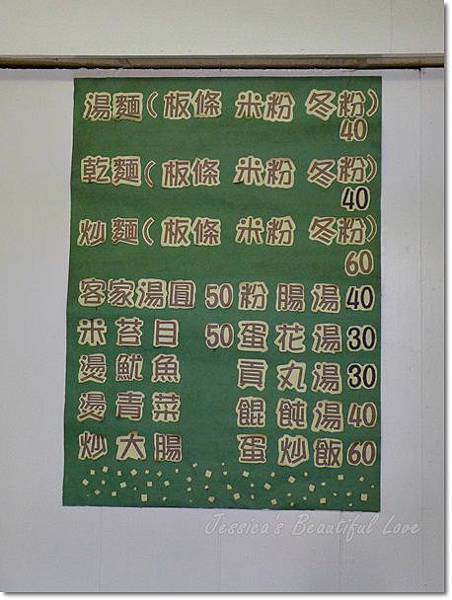 湯麵(板條 米粉 冬粉)
40
乾麵(板條 米粉 冬粉)
40
炒麵(板條 米粉 冬粉)
60
客家湯圓 50 粉腸湯 40
米苔目 50 蛋花湯 30
燙魷魚 貢丸湯 30
燙青菜 餛飩湯 40
炒大腸 蛋炒飯 60
Jessica's Beautiful Love